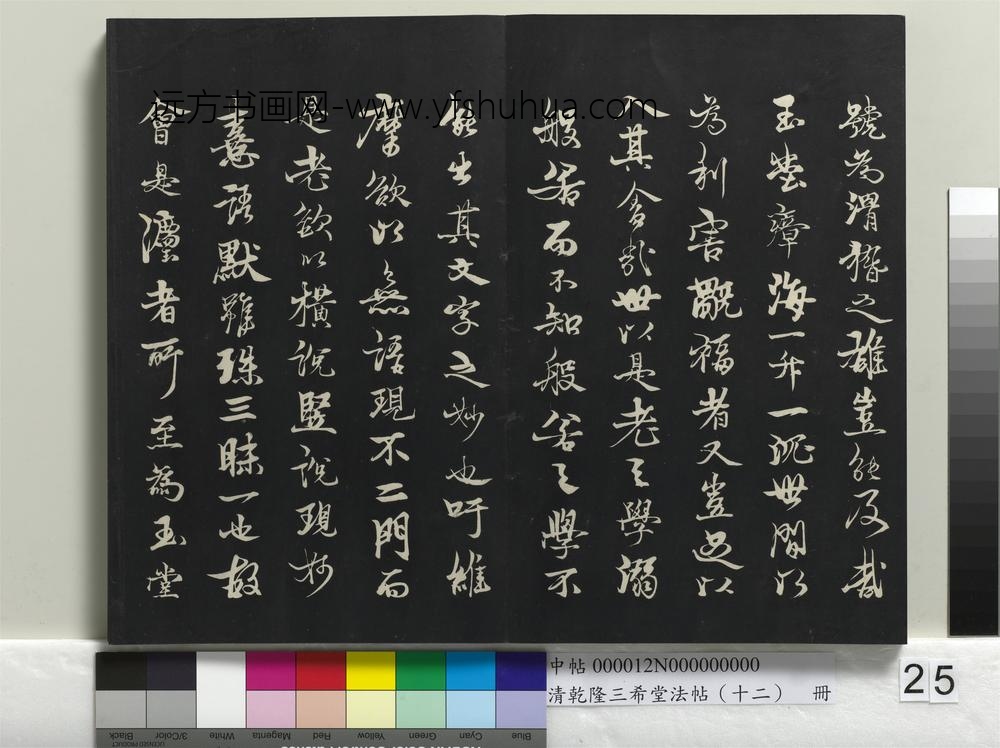 號為渭猶之雄豈能及哉
玉堂瘴海一升一沉世間以
為利害觀福者又豈足以
其舍哉世以是老之學溺
般若而不知般若之學不
能出其文字之妙也吁維
摩欲以無語現不二門而
是老欲以橫說豎說現妙
意語默雖殊三昧一也故
會是澧者所至為玉堂
远方书画网-www.yfshuhua.com
中帖 000012N000000000
清乾隆三希堂法帖（十二） 冊
25
Blue
Cyan
Green
Yellow
Red
Magenta
White
3/Color
Black